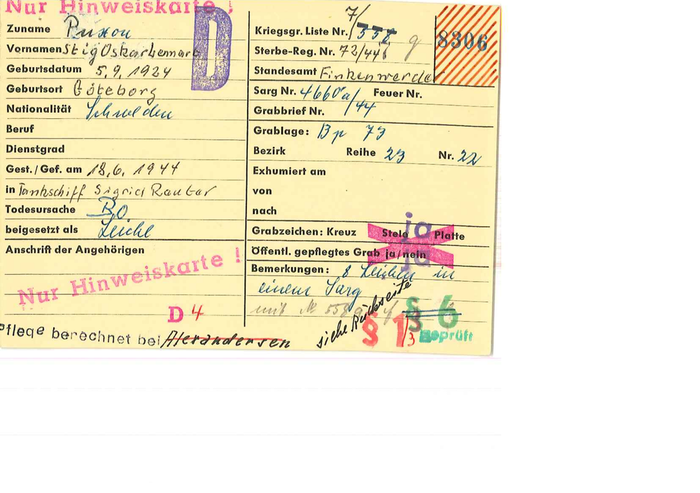 Nur Hinweiskarte !
Zuname
Vornamen Stig Oskar
Geburtsdatum 5.9.1924
Geburtsort Göteborg
Nationalität Schweden
Beruf
Dienstgrad
Gest./Gef. am 18.6.1944
in Tankschiff Sigrid Rauter
Todesursache BO
beigesetzt als Leiche
Anschrift der Angehörigen
Nur Hinweiskarte !
D 4
Pflege berechnet bei
D
Kriegsgr. Liste Nr. 7/558 g
8306
Sterbe-Reg. Nr. 72/446
Standesamt Finkenwerder
Sarg Nr. 4660a/ Feuer Nr.
Grabbrief Nr. /44
Grablage: Bp 73
Bezirk Reihe 23 Nr. 22
Exhumiert am
von
nach
ja
Grabzeichen: Kreuz Stele Platte
Öffentl. gepflegtes Grab ja/nein
ja
Bemerkungen: 8 Leichen in
einem Sarg
siehe Rückseite
§ 6
geprüft